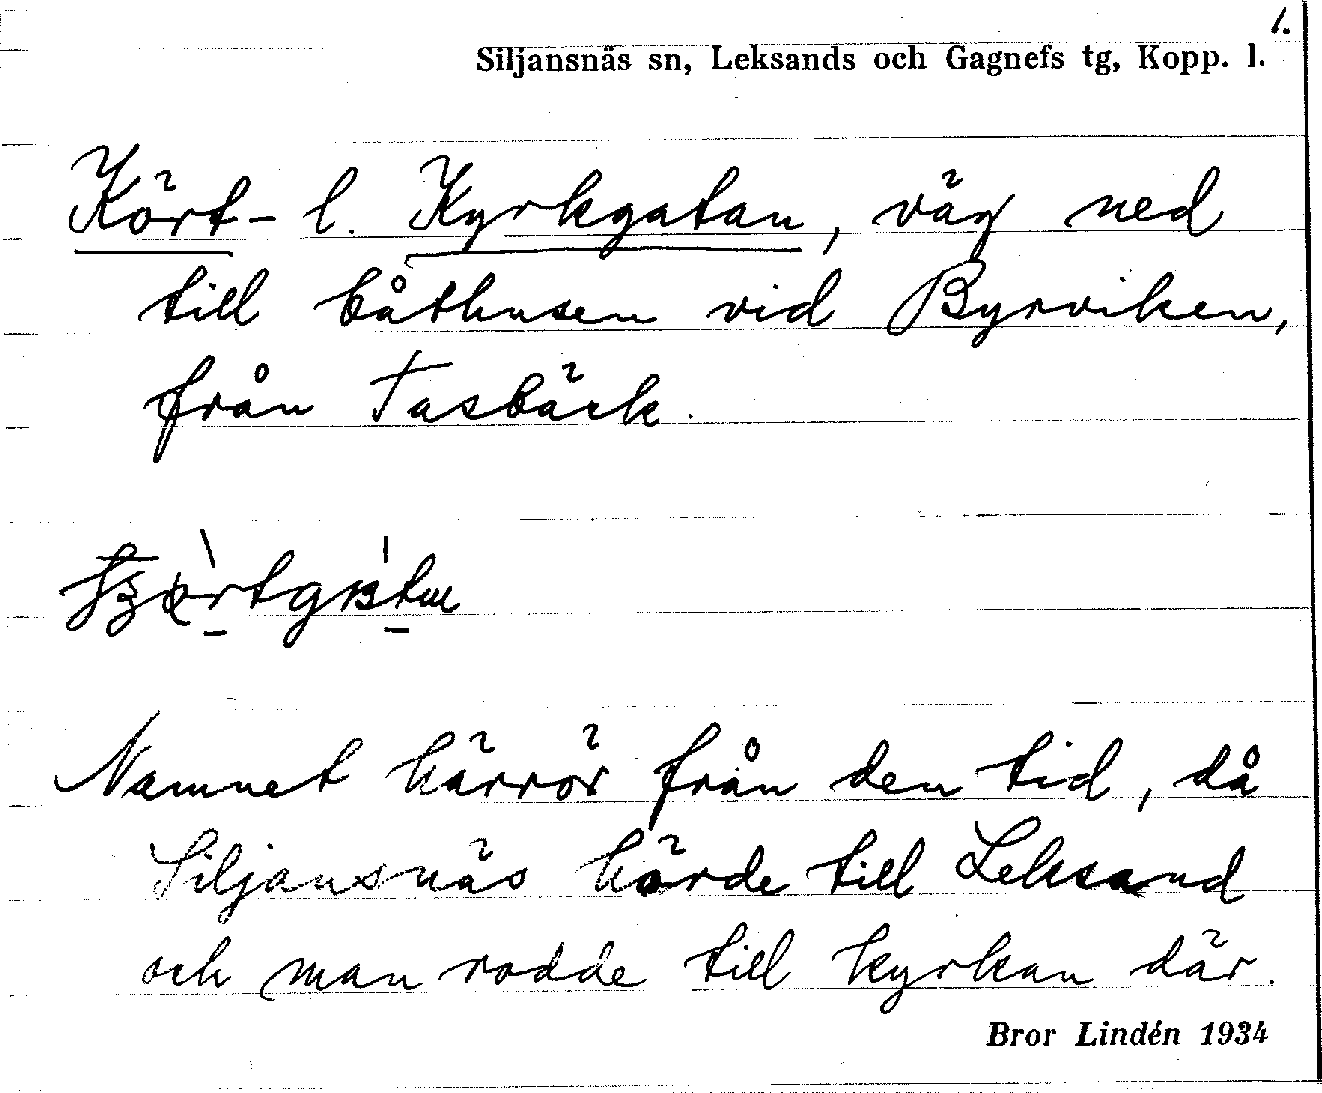 1.
Siljansnäs sn, Leksands och Gagnefs tg, Kopp. l.
Kört- l. Kyrkgatan, väg ned
till båthusen vid Byrviken,
från Tasbäck.
Namnet härrör från den tid, då
Siljansnäs hörde till Leksand
och man rodde till kyrkan där.
Bror Lindén 1934